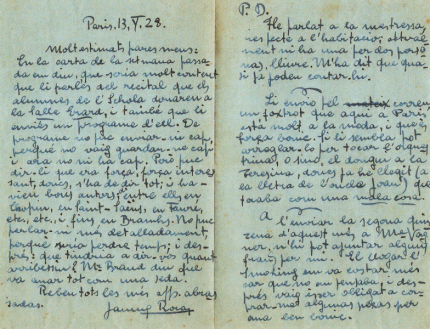 Paris, 13, V. 28.
Molt estimats pares meus:
En la carta de la setmana passa-
da em diu, que seria molt content
que li parlés del recital que els
alumnes de l'Schola donarem a
la Salle Erard, i també que li
enviés un programa d'ell. De
programa no puc enviar-ni cap,
perquè no vaig guardar-ne cap
i ara no ni ha cap. Pot puc
dir-li que era força, força interes-
sant, doncs, s'ha de dir tot; hi ha-
vien bons autors, entre ells en
Chopin, en Saint-Saens, en Fauré,
etc., etc., i fins en Brahms. No puc
parlar-hi més detalladament,
perquè seria perdre temps; i des-
prés: que tindria a dir-vos quant
arribés en? Mr. Braud diu que
va anar tot com una seda.
Rebeu tots les més aff. abras-
sades.
Jaume
P. D.
He parlat a la mestressa
respecte a l'habitació; actual-
ment ni ha una per dos perso-
nas, lliure. M'ha dit que qua-
si pe poden contar-hi.
Li envio pel mateix correu,
un foxtrot que aquí a Paris
està molt a la moda, i que és
força bonic. Si li sembla pot
arreglar-lo per tocar l'orques-
trina, o sinó, el dongui a la
Teresina, doncs ja he llegit (a
la lletra de l'oncle Joan) que
tocaba com una mala cosa.
A l'enviar la segona quin-
zena d'aquest més a Mr. Wag-
ner, n'hi pot ajuntar alguns
francs per mi. El llogar l'
smoking em va costar més
car que no em pensaba, i des-
prés vaig ésser obligat a com-
prar-me algunes peces per
ana ben correcte.